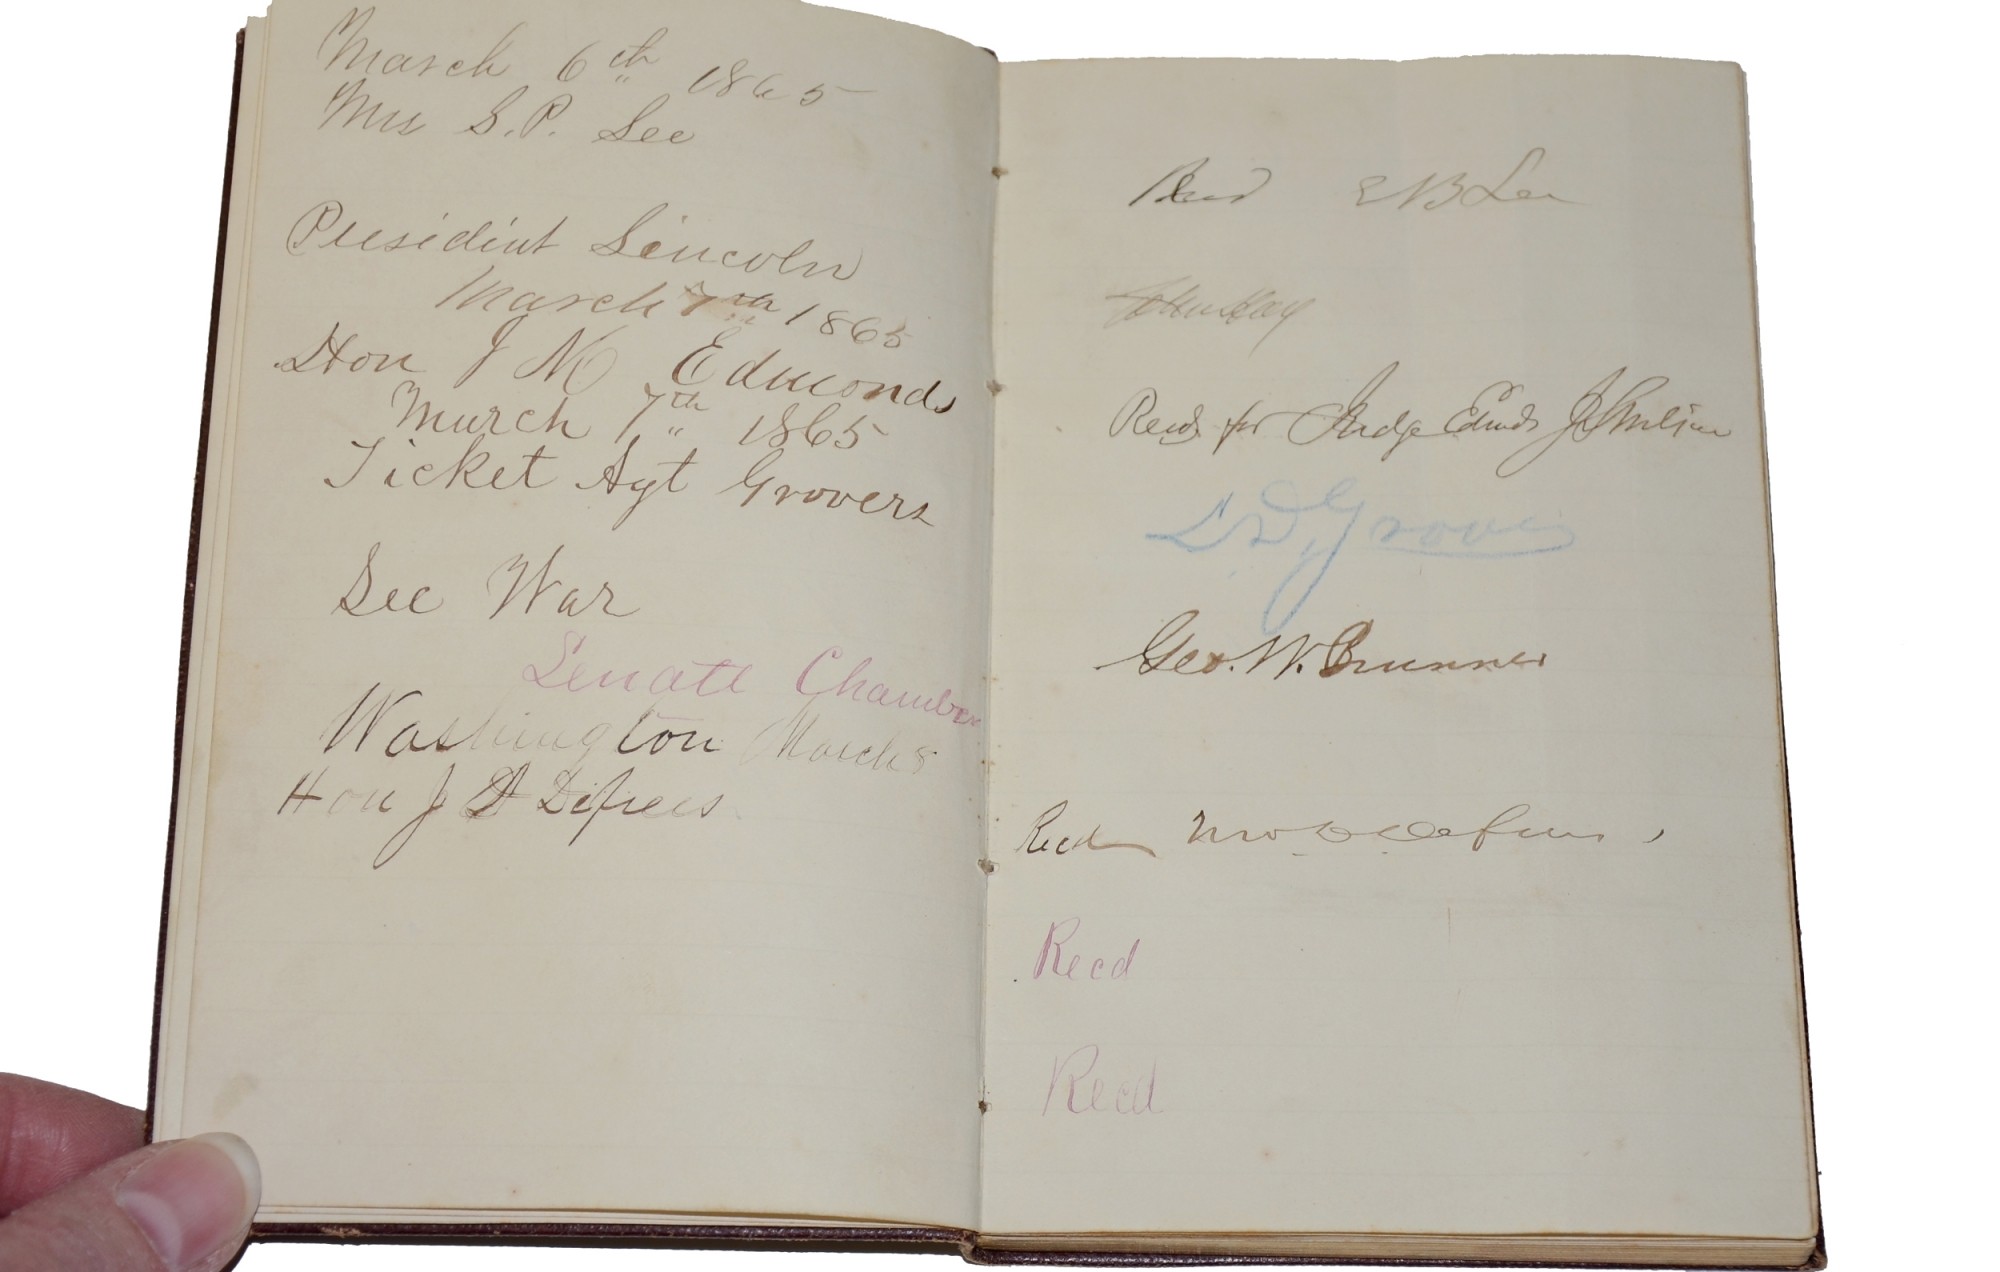 March 6th 1865
Mrs S. P. Lee
President Lincoln
March 7th 1865
Hon J M Edmonds
March 7th 1865
Ticket Agt Grovers
Sec War
Senate Chamber
Washington March 8
Hon J D Defrees
Recd E B Lee
John Hay
Recd for Judge Edmds
L D, Grover
Geo. W. Brunner
Recd
Recd
Recd